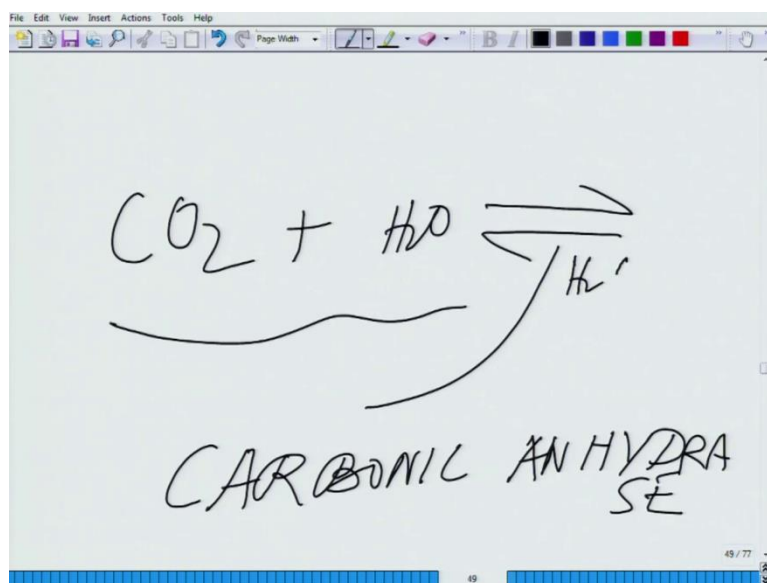 File Edit View Insert Actions Tools Help
Page Width
B I
CO2 + H2O ⇌
CARBONIC ANHYDRA
SE
49 / 77
49